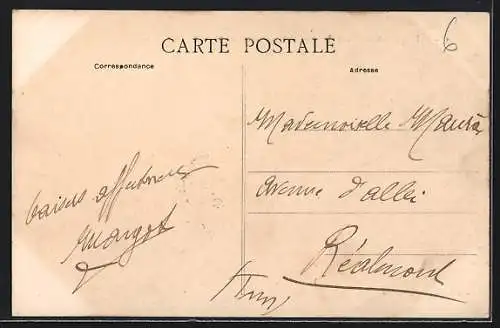 6
CARTE POSTALE
Correspondance
Adresse
Mademoiselle Maura
Avenue d'albi
baisers affectueux
Margot
Réalmont
Tarn